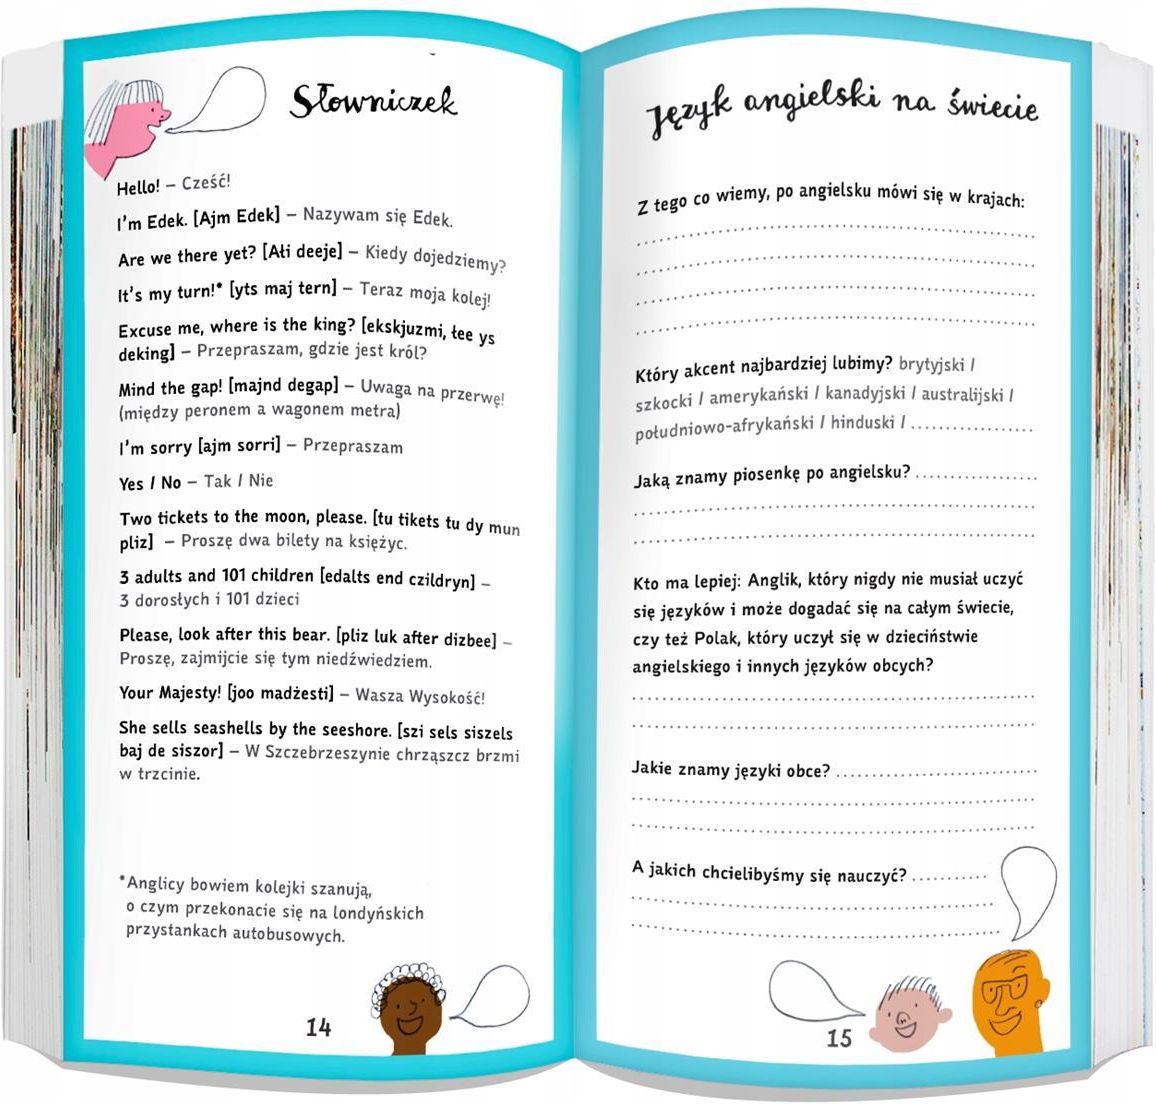 Słowniczek
Hello! – Cześć!
I'm Edek. [Ajm Edek] – Nazywam się Edek.
Are we there yet? [Ałi deeje] – Kiedy dojedziemy?
It's my turn!* [yts maj tern] – Teraz moja kolej!
Excuse me, where is the king? [ekskjuzmi, łee ys
deking] – Przepraszam, gdzie jest król?
Mind the gap! [majnd degap] – Uwaga na przerwę!
(między peronem a wagonem metra)
I'm sorry [ajm sorri] – Przepraszam
Yes / No – Tak / Nie
Two tickets to the moon, please. [tu tikets tu dy mun
pliz] – Proszę dwa bilety na księżyc.
3 adults and 101 children [edalts end czildryn] –
3 dorosłych i 101 dzieci
Please, look after this bear. [pliz luk after dizbee] –
Proszę, zajmijcie się tym niedźwiedziem.
Your Majesty! [joo madżesti] – Wasza Wysokość!
She sells seashells by the seeshore. [szi sels siszels
baj de siszor] – W Szczebrzeszynie chrząszcz brzmi
w trzcinie.
*Anglicy bowiem kolejki szanują,
o czym przekonacie się na londyńskich
przystankach autobusowych.
14
Język angielski na świecie
Z tego co wiemy, po angielsku mówi się w krajach:
Który akcent najbardziej lubimy? brytyjski /
szkocki / amerykański / kanadyjski / australijski /
południowo-afrykański / hinduski /
Jaką znamy piosenkę po angielsku?
Kto ma lepiej: Anglik, który nigdy nie musiał uczyć
się języków i może dogadać się na całym świecie,
czy też Polak, który uczył się w dzieciństwie
angielskiego i innych języków obcych?
Jakie znamy języki obce?
A jakich chcielibyśmy się nauczyć?
15